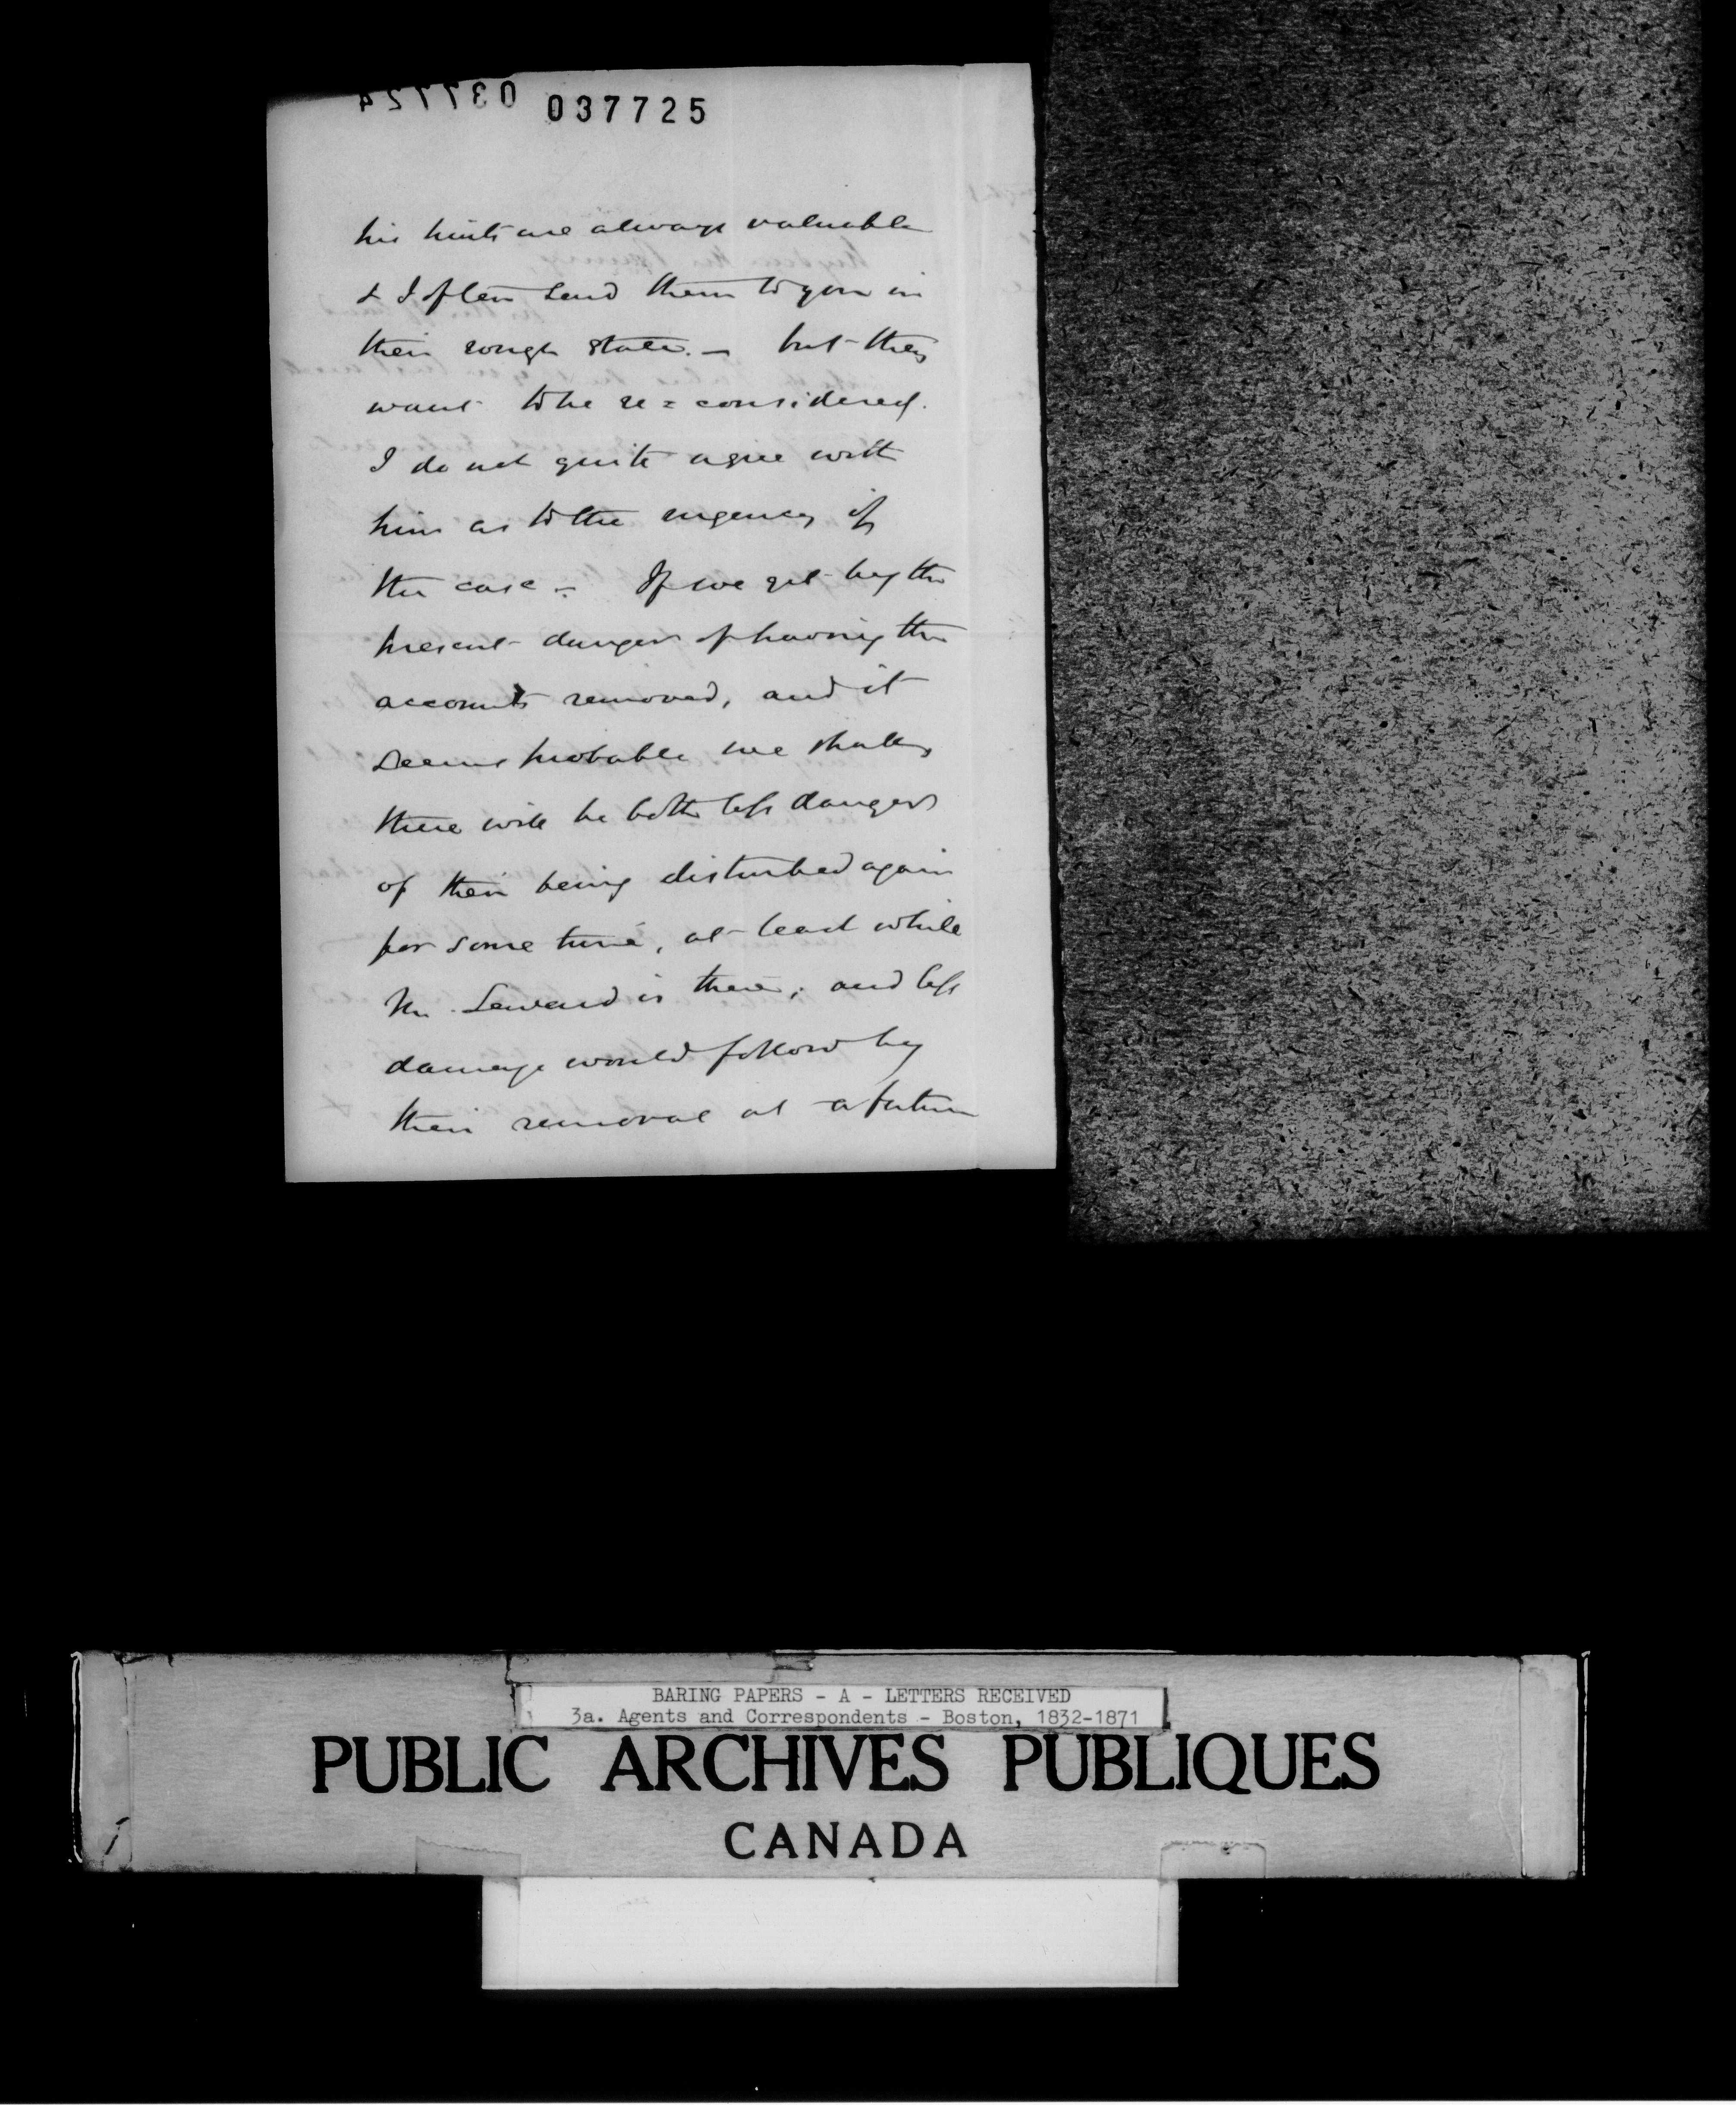 037724 037725
his hints are always valuable
& I often send them to you in
their rough state. — but they
want to be re=considered.
I do not quite agree with
him as to the urgency of
the case – If we get by the
present danger of having the
accounts removed, and it
seems probable we shall,
there will be both less danger
of their being disturbed again
for some time, at least while
Mr. Seward is there; and less
damage would follow by
their removal at a future
BARING PAPERS - A - LETTERS RECEIVED
3a. Agents and Correspondents - Boston, 1832-1871
PUBLIC ARCHIVES PUBLIQUES
CANADA